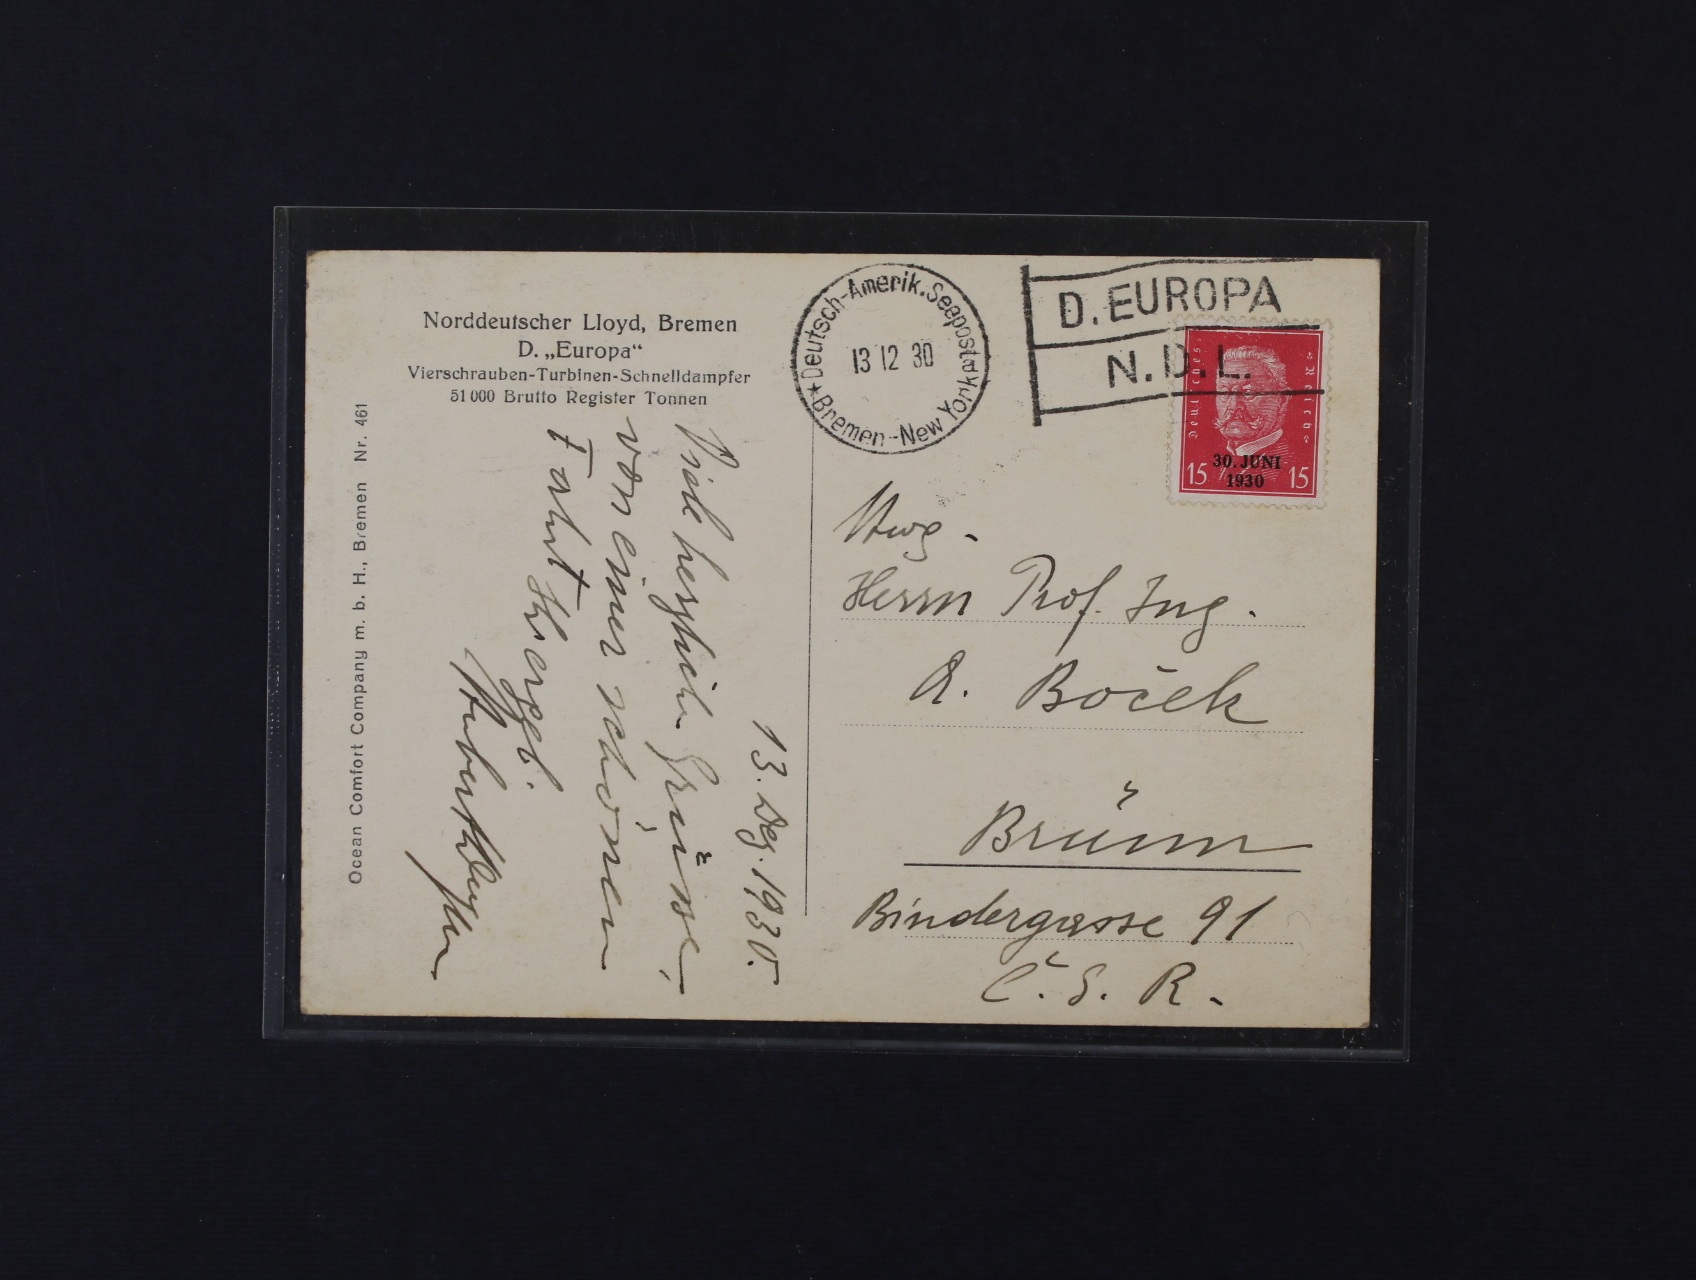 Norddeutscher Lloyd, Bremen
D. „Europa“
Vierschrauben-Turbinen-Schnelldampfer
51 000 Brutto Register Tonnen
Ocean Comfort Company m. b. H., Bremen Nr. 461
13. Dez. 1930.
Viele herzliche Grüsse,
von einer schönen
Fahrt
Deutsch-Amerik. Seepost
Bremen-New York
13 12 30
D. EUROPA
N.D.L.
Deutsches Reich
30. JUNI
1930
15 15
Herrn Prof. Ing.
A. Boček
Brünn
Bindergasse 91
Č. S. R.